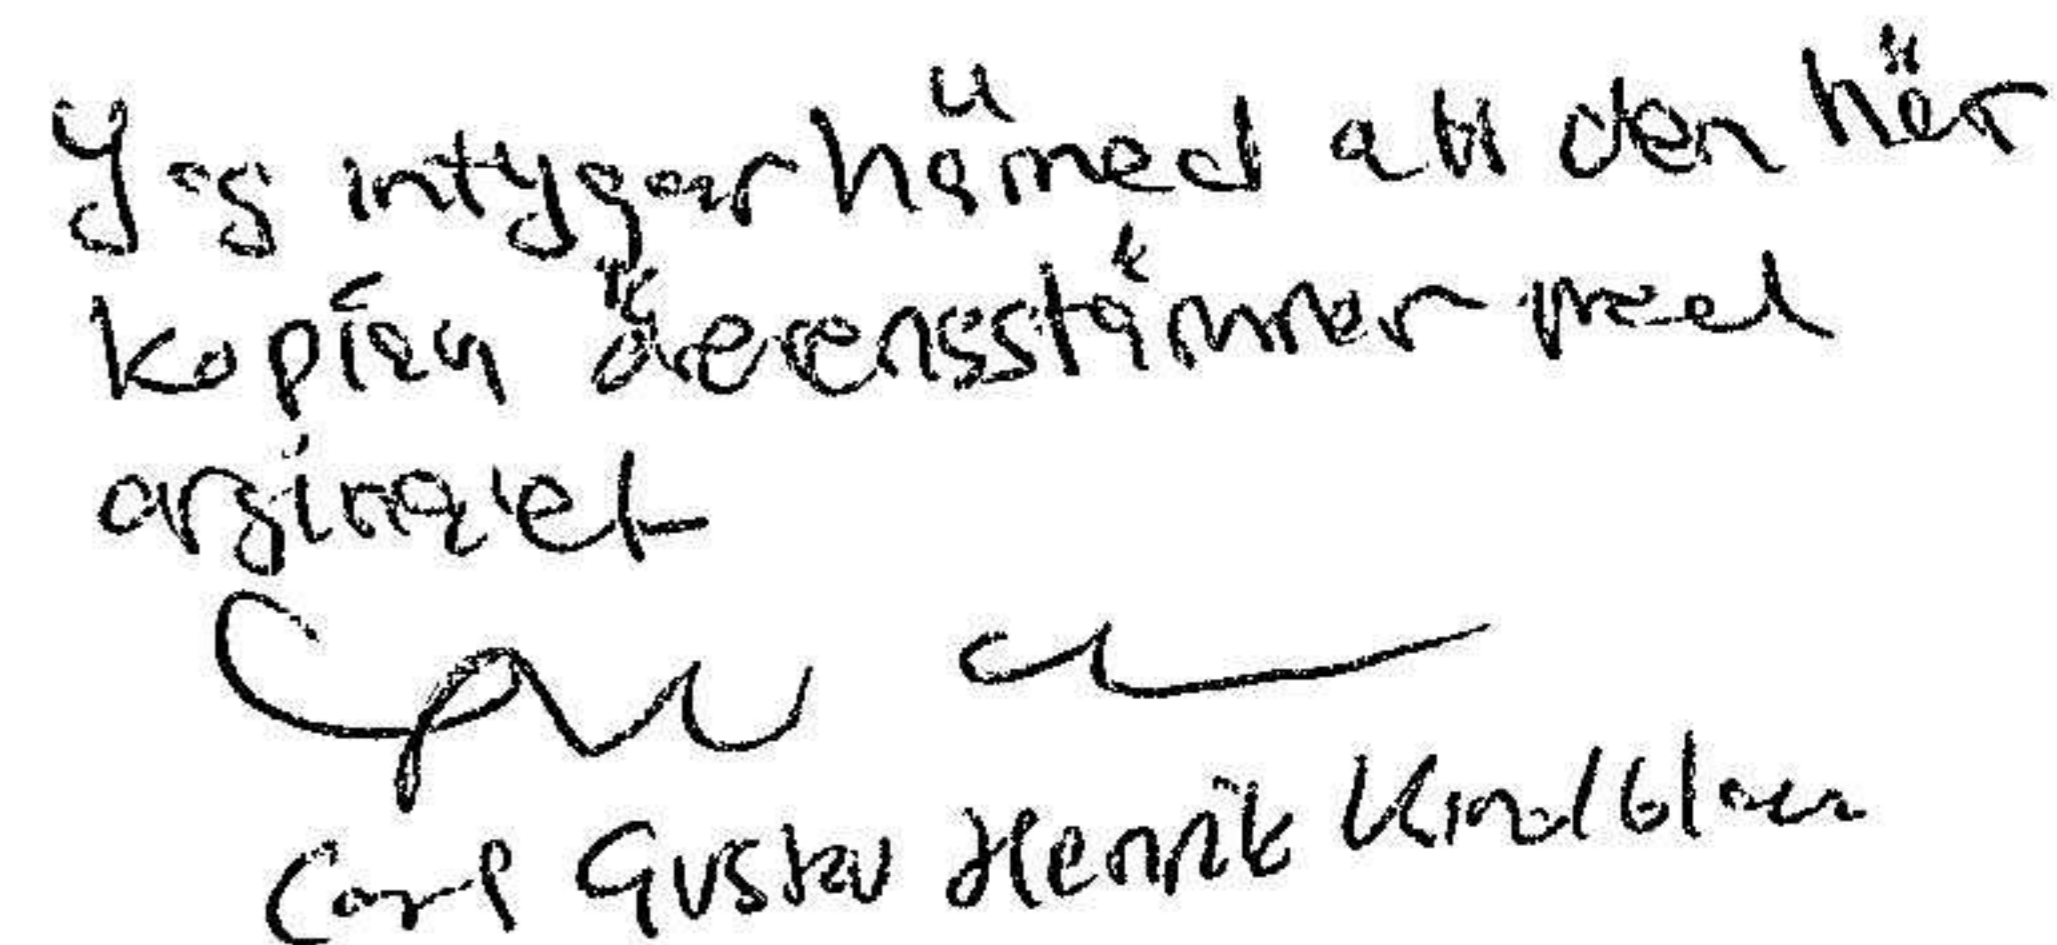 Jag intygar hämed att den här
kopian överensstämmer med
orginalet
Carl Gustav Henrik Kindblom